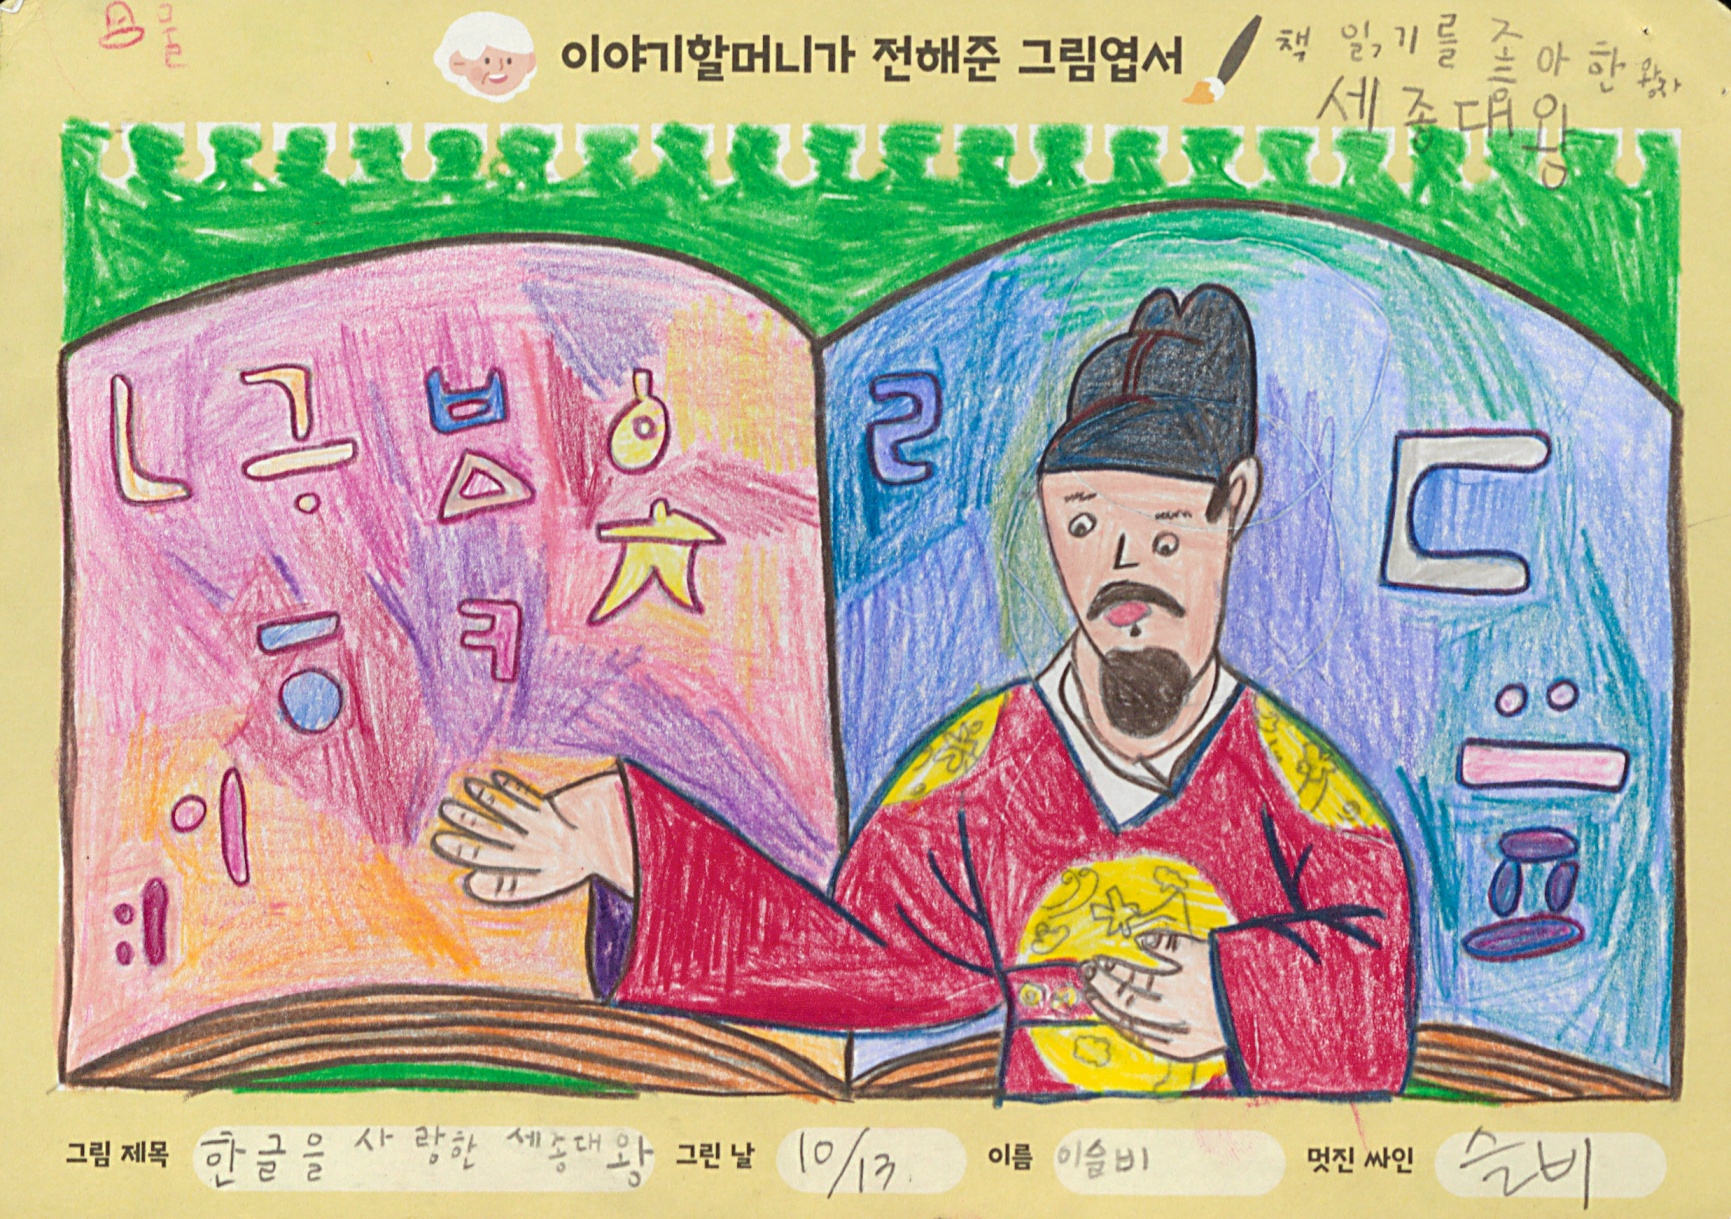 이야기할머니가 전해준 그림엽서
책 읽기를 좋아한 왕자
세종대왕
ㄴ 그 ㅂ ㄹ ㄷ
ㅿ ㅊ
ㅡ ㅋ
ㅇ
이
ㅍ
그림 제목 한글을 사랑한 세종대왕 그린 날 10/13. 이름 이슬비 멋진 싸인 슬비